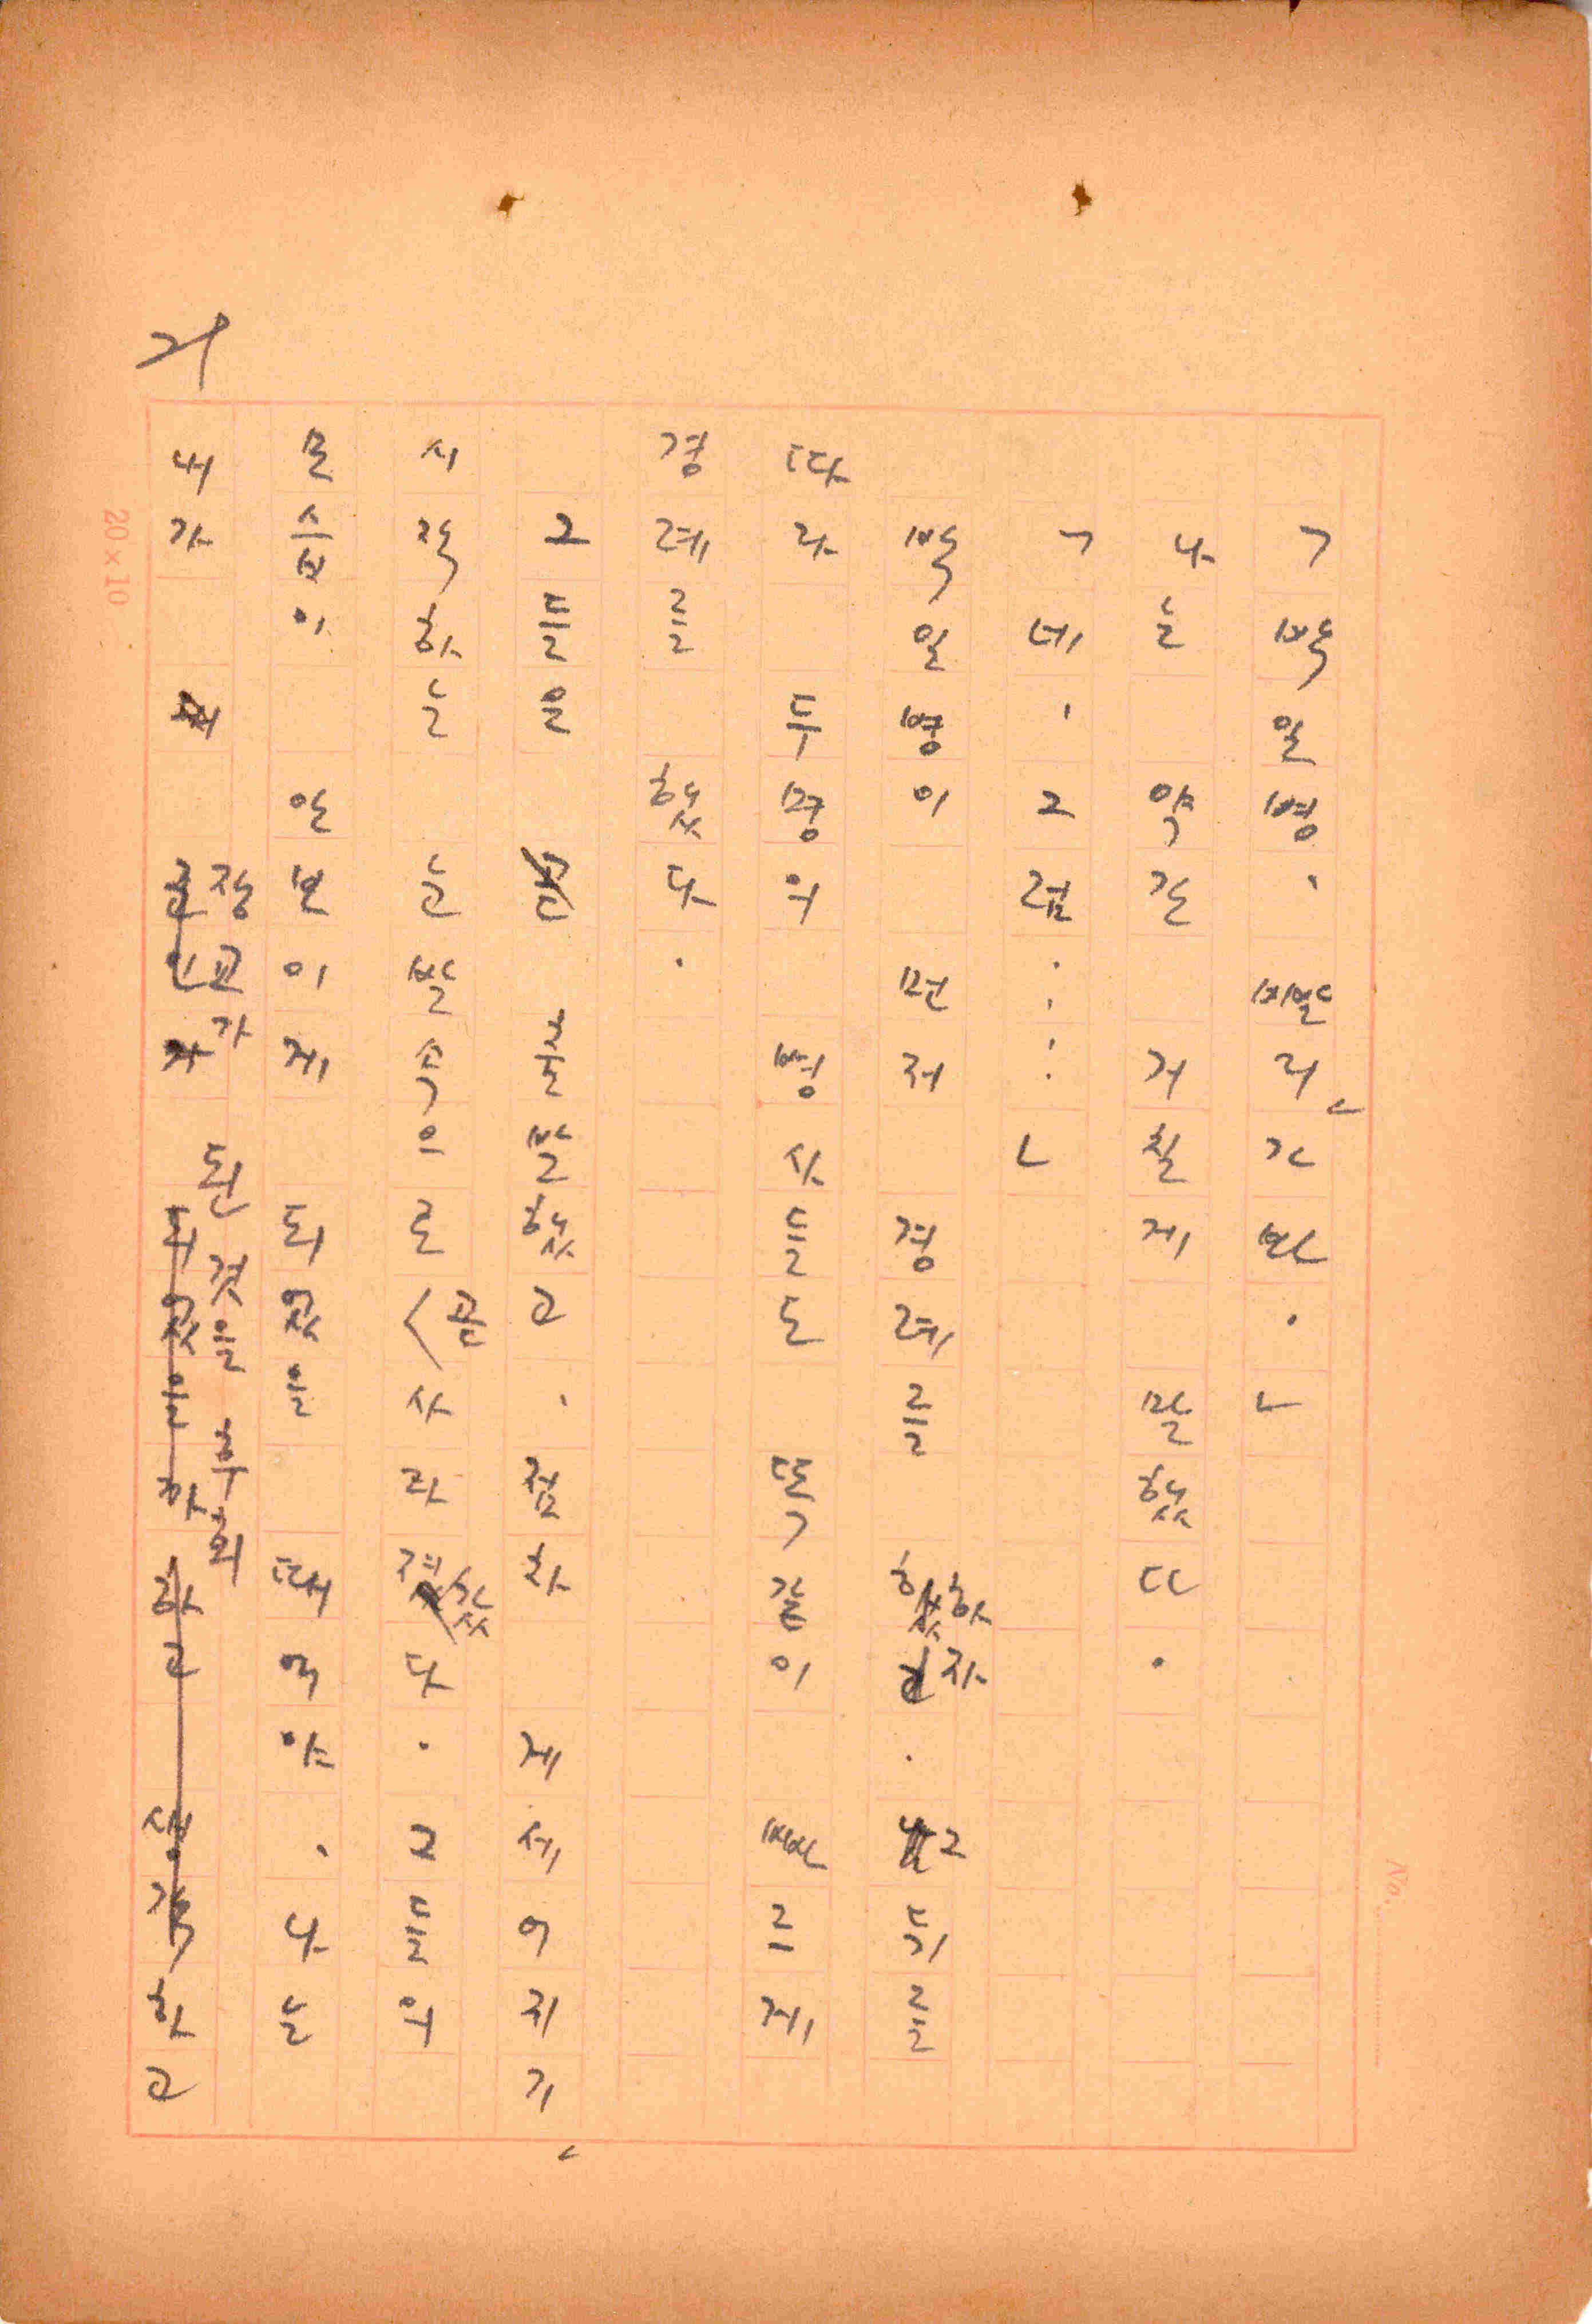 「박일병. 빨리 가 봐.」
나는 약간 거칠게 말했다.
「네, 그럼……」
박일병이 먼저 경례를 하자. 그 뒤를
따라 두명의 병사들도 똑같이 빠르게
경례를 했다.
그들은 출발했고, 점차 거세어지기
시작하는 눈발속으로 곧 사라져갔다. 그들의
모습이 안보이게 되었을 때에야, 나는
내가 장교가 된 것을 후회하고
20×10
No.